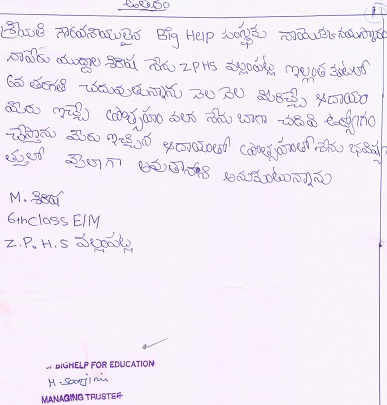 ఉత్తరం
శ్రీయుత గౌరవనీయులైన Big Help సంస్థకు నాయొక్క నమస్కారం
నాపేరు యుద్దాల శిరీష నేను ZPHS వల్లంపట్ల ఇల్లంతకుంటలో
6వ తరగతి చదువుతున్నాను నెల నెల మీరిచ్చే ఆదాయం
మీరు ఇచ్చే ప్రోత్సహం వలన నేను బాగా చదివి ఉద్యోగం
చేస్తాను మీరు ఇచ్చిన ఆదాయంతో ప్రోత్సహంతో నేను భవిష్య
త్తులో అవుతానని అనుకుంటున్నాను
M. శిరీష
6th class E/M
Z.P.H.S వల్లంపట్ల
BIGHELP FOR EDUCATION
MANAGING TRUSTEE